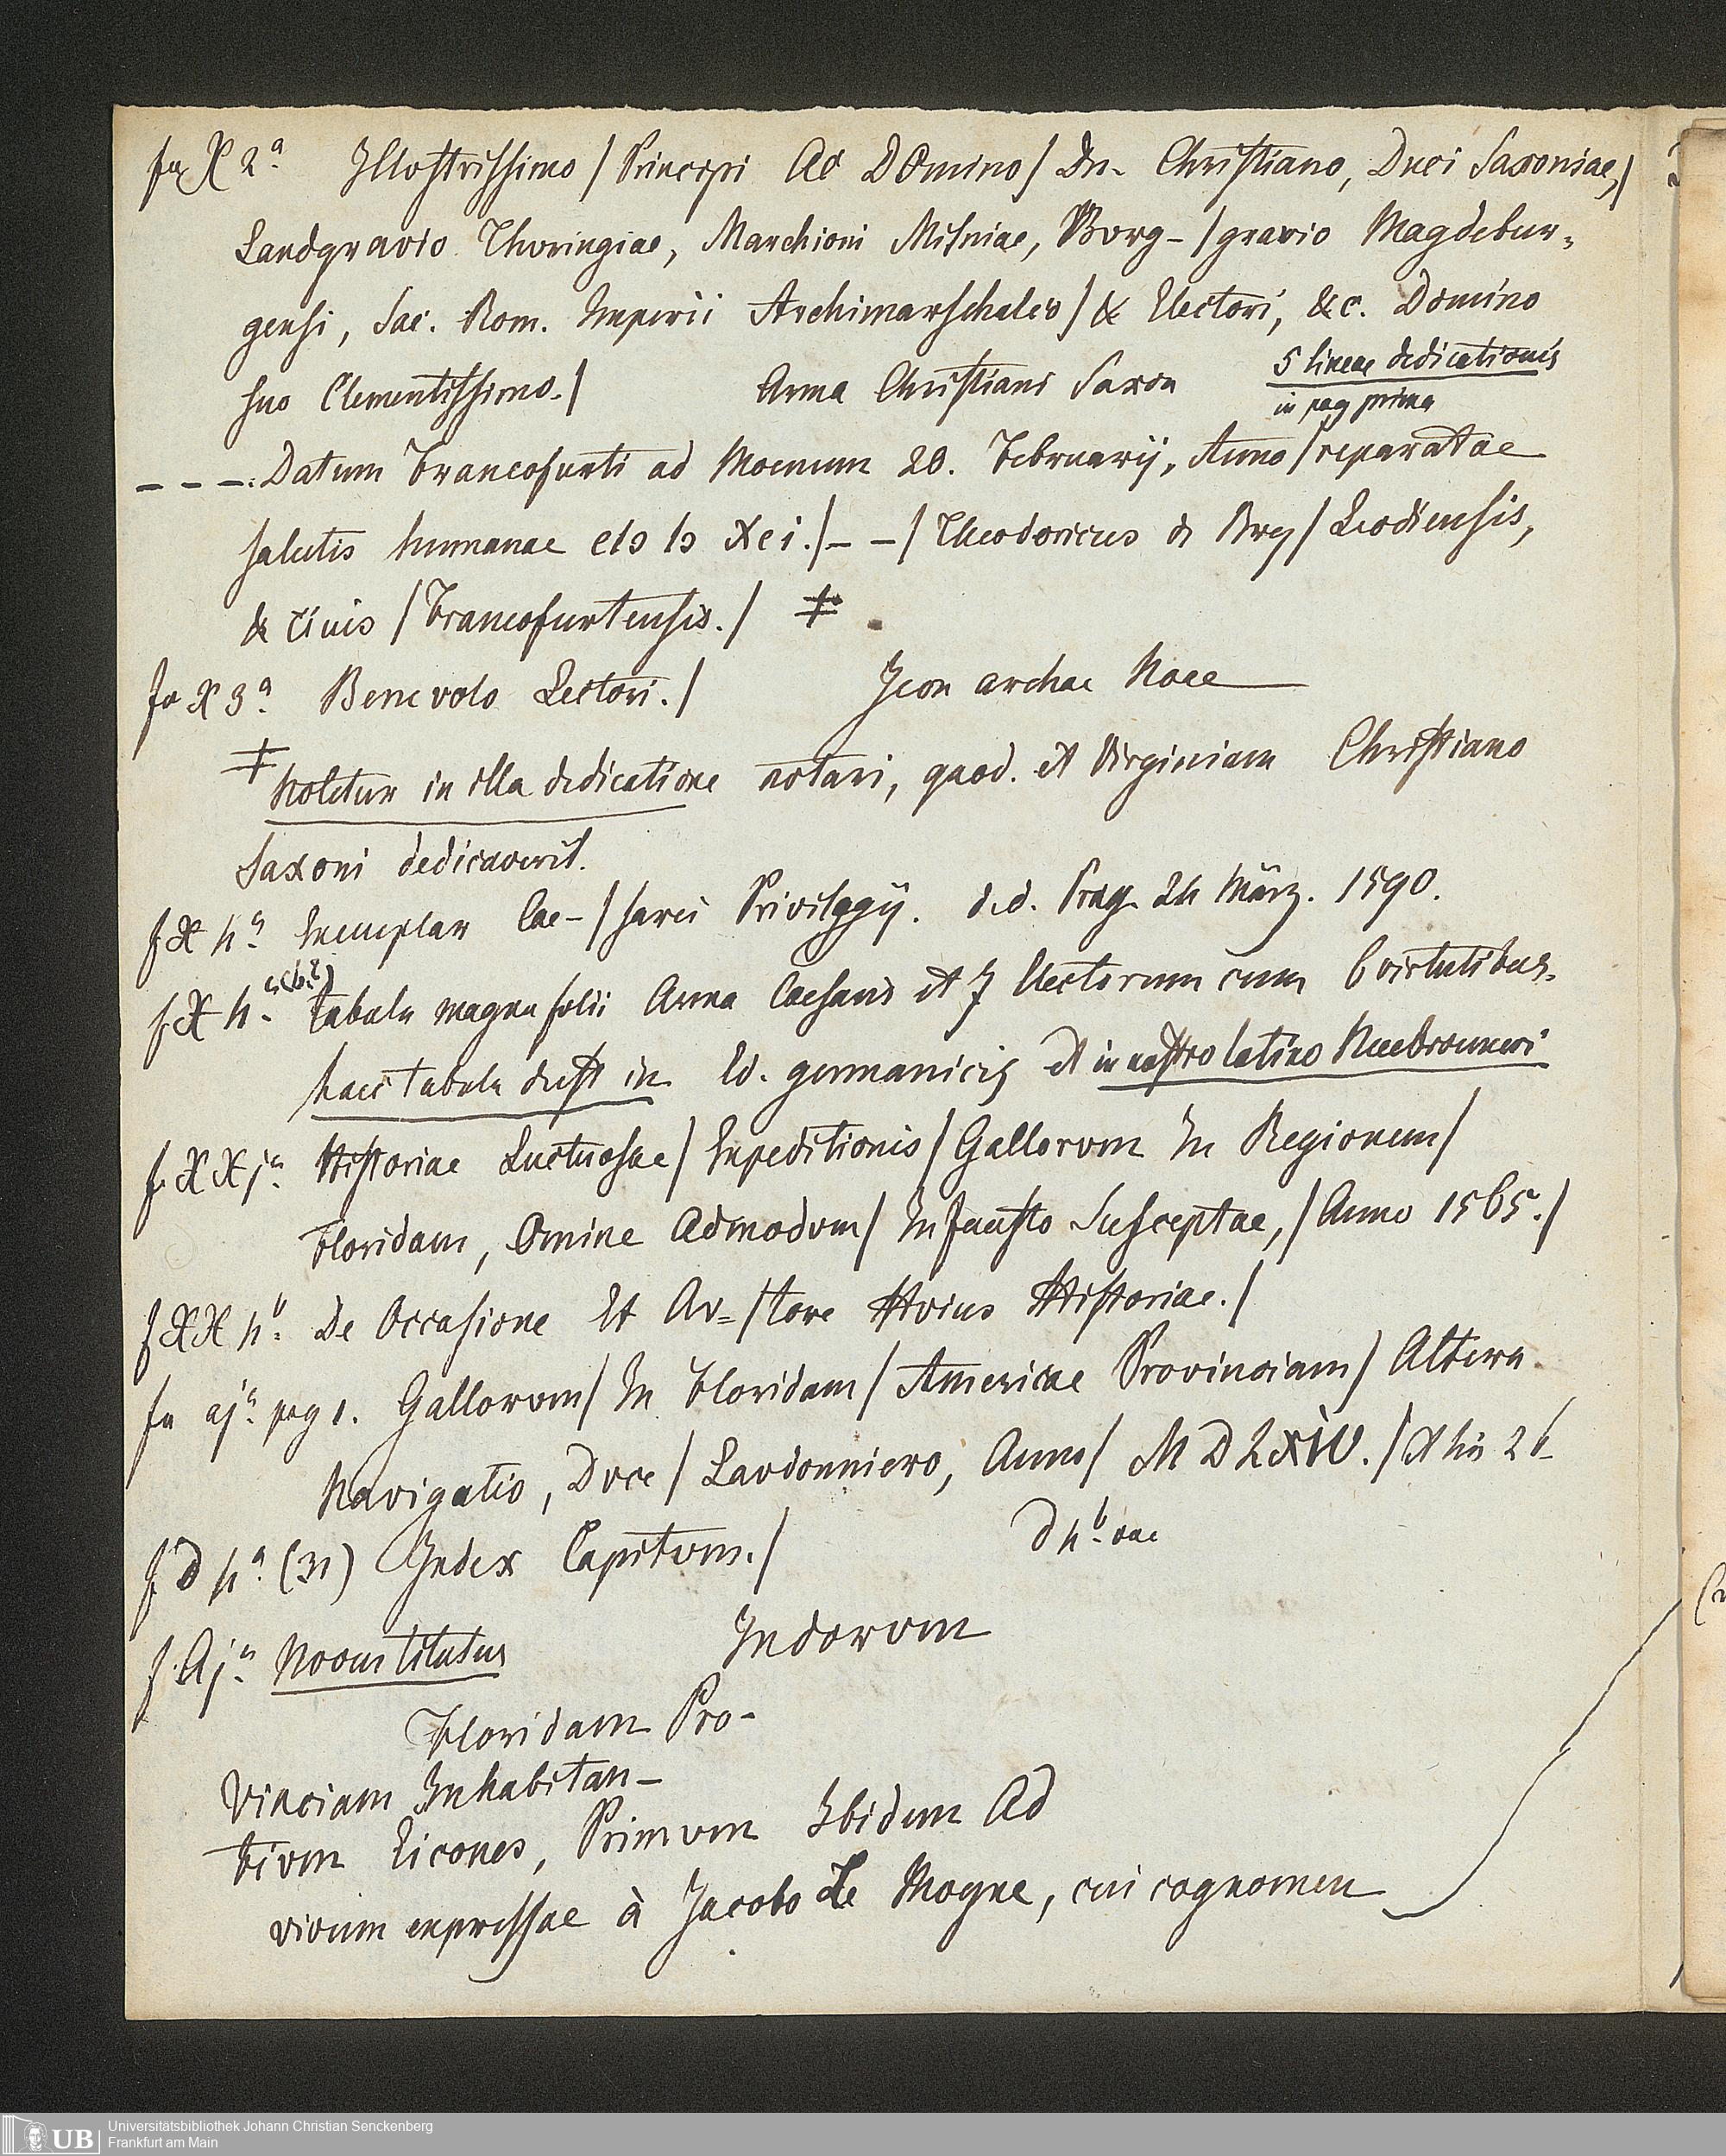 fa X 2ª Illvstrissimo / Principi Ac DOmino / Dn. Christiano, Duci Saxoniae, /
Landgravio Thvringiae, Marchioni Misniae, Bvrg- / gravio Magdebur-
gensi, Sac. Rom. Imperii Archimarschalco / & Electori, &c. Domino
suo Clementissimo. / Arma Christiani Saxon 5 lineae dedicationis
in pag prima
_ _ _. Datum Francofurti ad Moenum 20. Februarij, Anno / reparatae
salutis humanae cIɔ Iɔ Xci. / _ _ / Theodoricus d Bry / Leodiensis,
& civis / Francofurtensis. / ‡
fa X 3ª Benevolo Lectori. / Icon archae Noae
‡ Notetur in illa dedicatione notari, quod et Virginiam Christiano
Saxoni dedicaverit.
f X 4ª Exemplar Cae- / sarei Privilegij. d.d. Prag 24 März. 1590.
f X 4ª (b?) tabula magna folii Arma Caesaris et 7 Electorum cum 6 virtutibus.
haec tabula deest in Ed. germanicis et in nostro latino
f. X X jª Historiae Luctuosae / Expeditionis / Gallorvm In Regionem /
Floridam, Omine Admodvm / Infausto Susceptae, / Anno 1565. /
f X X 4b De Occasione Et Av= / tore Hvius Historiae. /
fa ajª pag 1. Gallorvm / In Floridam / Americae Provinciam / Altera
Navigatio, Dvce / Lavdonniero, Anno / M D LXIV. /
f d 4ª (31) Index Capitvm. / d 4b vac
f. Ajª Novus titulus Indorvm
Floridam Pro-
vinciam Inhabitan-
tivm Eicones, Primvm Ibidem Ad
vivum expressae à Jacobo Le Moyne, cui cognomen
UB Universitätsbibliothek Johann Christian Senckenberg
Frankfurt am Main